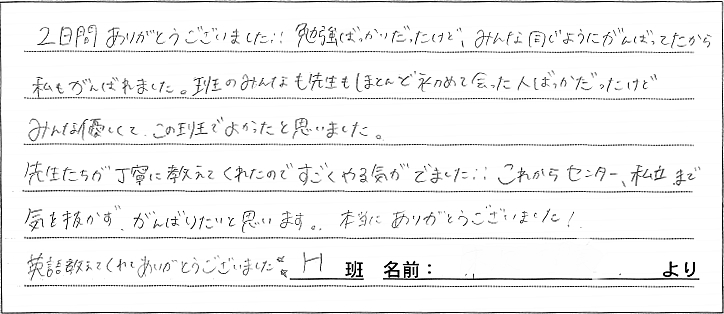 2日間ありがとうございました!! 勉強ばっかりだったけど、みんな同じようにがんばってたから
私もがんばれました。班のみんなも先生もほとんど初めて会った人ばっかだったけど
みんな優しくて、この班でよかったと思いました。
先生たちが丁寧に教えてくれたのですごくやる気がでました!! これからセンター、私立まで
気を抜かず、がんばりたいと思います。本当にありがとうございました!
英語教えてくれてありがとうございました H 班 名前: より